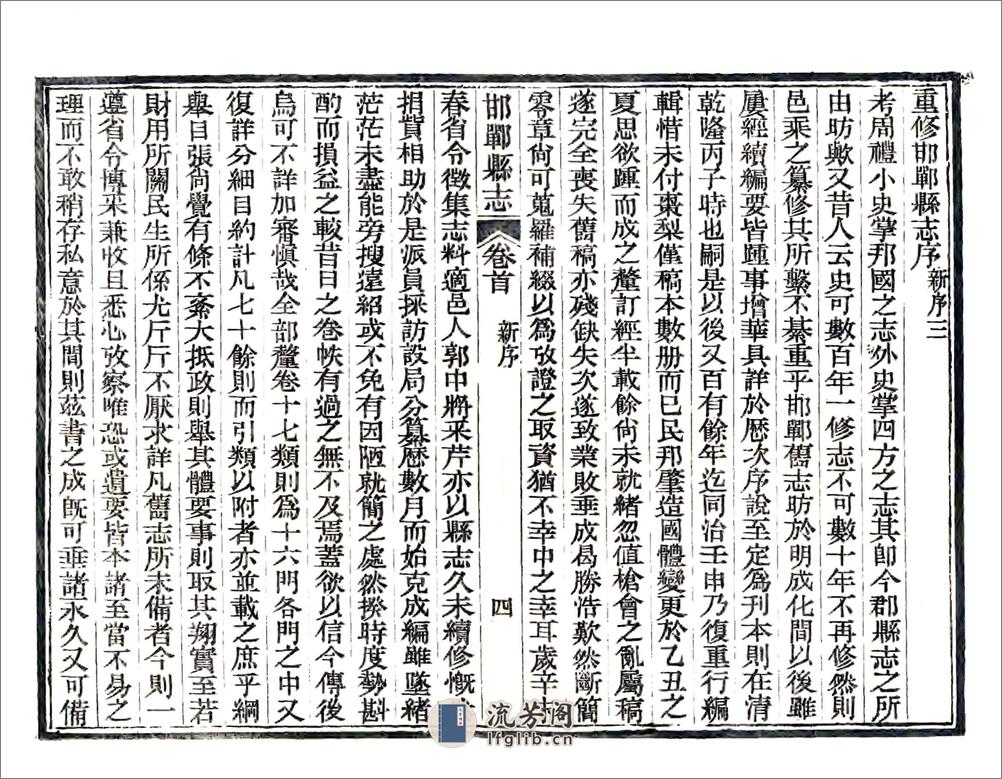 重修邯鄲縣志序 新序三
考周禮小史掌邦國之志外史掌四方之志其卽今郡縣志之所
由昉歟又昔人云史可數百年一修志不可數十年不再修然則
邑乘之纂修其所繫不綦重乎邯鄲舊志昉於明成化間以後雖
屢經續編要皆踵事增華具詳於歷次序說至定爲刊本則在清
乾隆丙子時也嗣是以後又百有餘年迄同治壬申乃復重行編
輯惜未付棗梨僅稿本數册而已民邦肇造國體變更於乙丑之
夏思欲踵而成之釐訂經半載餘尙未就緒忽值槍會之亂屬稿
遂完全喪失舊稿亦殘缺失次遂致業敗垂成曷勝浩歎然斷簡
零章尙可蒐羅補綴以爲攷證之取資猶不幸中之幸耳歲辛
邯鄲縣志 卷首 新序 四
春省令徵集志料適邑人郭中將采芹亦以縣志久未續修慨
捐貲相助於是派員採訪設局分纂歷數月而始克成編雖墜緒
茫茫未盡能旁搜遠紹或不免有因陋就簡之處然揆時度勢斟
酌而損益之較昔日之卷帙有過之無不及焉蓋欲以信今傳後
烏可不詳加審愼哉全部釐卷十七類則爲十六門各門之中又
復詳分細目約計凡七十餘則而引類以附者亦並載之庶乎綱
舉目張尙覺有條不紊大抵政則舉其體要事則取其翔實至若
財用所關民生所係尤斤斤不厭求詳凡舊志所未備者今則一
遵省令博采兼收且悉心攷察唯恐或遺要皆本諸至當不易之
理而不敢稍存私意於其間則茲書之成旣可垂諸永久又可備
流芳閣
lfglib.cn